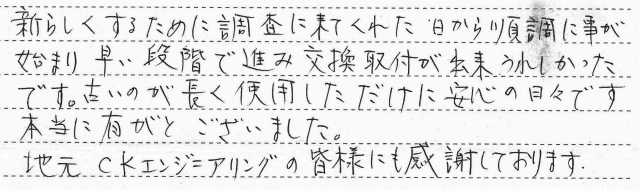 新らしくするために調査に来てくれた日から順調に事が
始まり早い段階で進み交換取付が出来うれしかった
です。古いのが長く使用しただけに安心の日々です
本当に有がとございました。
地元CKエンジニアリングの皆様にも感謝しております.